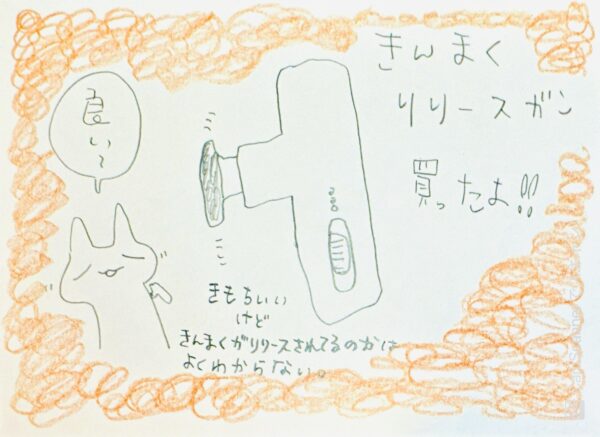 きんまく
リリースガン
買ったよ!!
良い~
きもちいい
けど
きんまくがリリースされてるのかは
よくわからない。